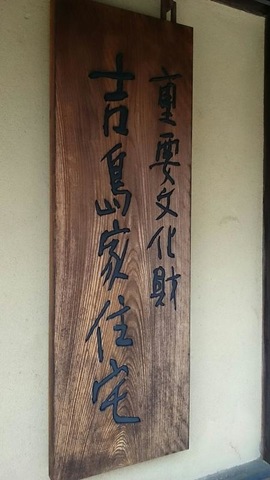 重要文化財
吉島家住宅